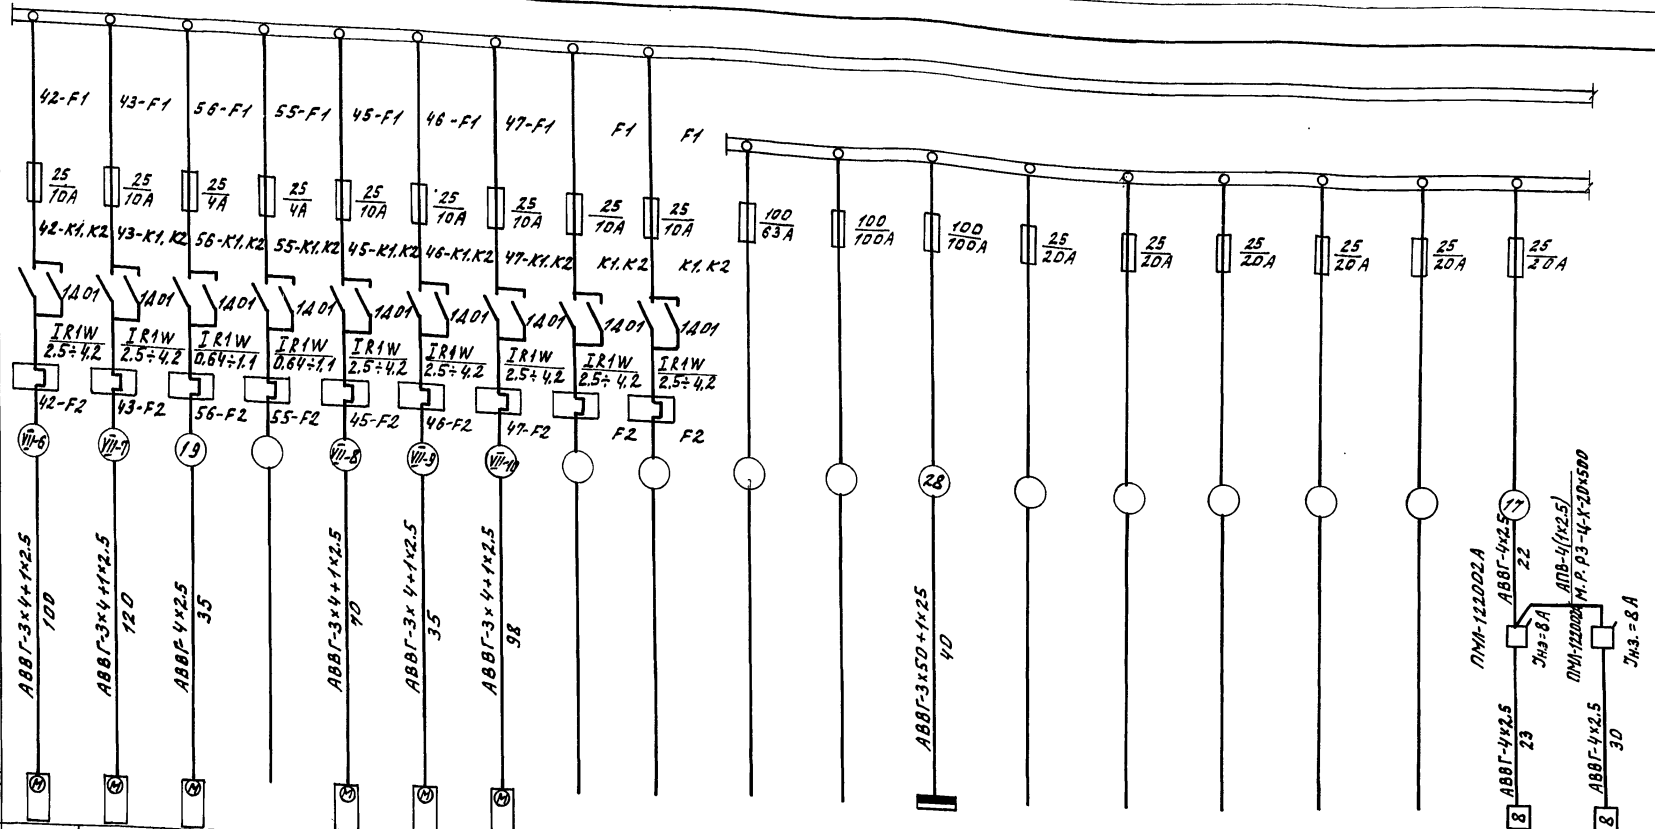 42-F1 43-F1 56-F1 55-F1 45-F1 46-F1 47-F1 F1 F1
25/10А 25/10А 25/4А 25/4А 25/10А 25/10А 25/10А 25/10А 25/10А 100/63А 100/100А 100/100А 25/20А 25/20А 25/20А 25/20А 25/20А 25/20А
42-К1.К2 43-К1.К2 56-К1.К2 55-К1.К2 45-К1.К2 46-К1.К2 47-К1.К2 К1.К2 К1.К2
1Д01 1Д01 1Д01 1Д01 1Д01 1Д01 1Д01 1Д01 1Д01
IR1W IR1W IR1W IR1W IR1W IR1W IR1W IR1W IR1W
2.5÷4.2 2.5÷4.2 0.64÷1.1 0.64÷1.1 2.5÷4.2 2.5÷4.2 2.5÷4.2 2.5÷4.2 2.5÷4.2
42-F2 43-F2 56-F2 55-F2 45-F2 46-F2 47-F2 F2 F2
VII-6 VII-7 19 VII-8 VII-9 VII-10 28 17
АВВГ-3х4+1х2.5
100
АВВГ-3х4+1х2.5
120
АВВГ-4х2.5
35
АВВГ-3х4+1х2.5
70
АВВГ-3х4+1х2.5
35
АВВГ-3х4+1х2.5
98
АВВГ-3х50+1х25
40
ПМЛ-122002А
АВВГ-4х2.5
22
АПВ-4(1х2.5)
М.Р. РЗ-Ц-Х-20х500
Jн.э=8А
ПМЛ-122002А
Jн.э.=8А
АВВГ-4х2.5
23
АВВГ-4х2.5
30
М М М М М М 8 8